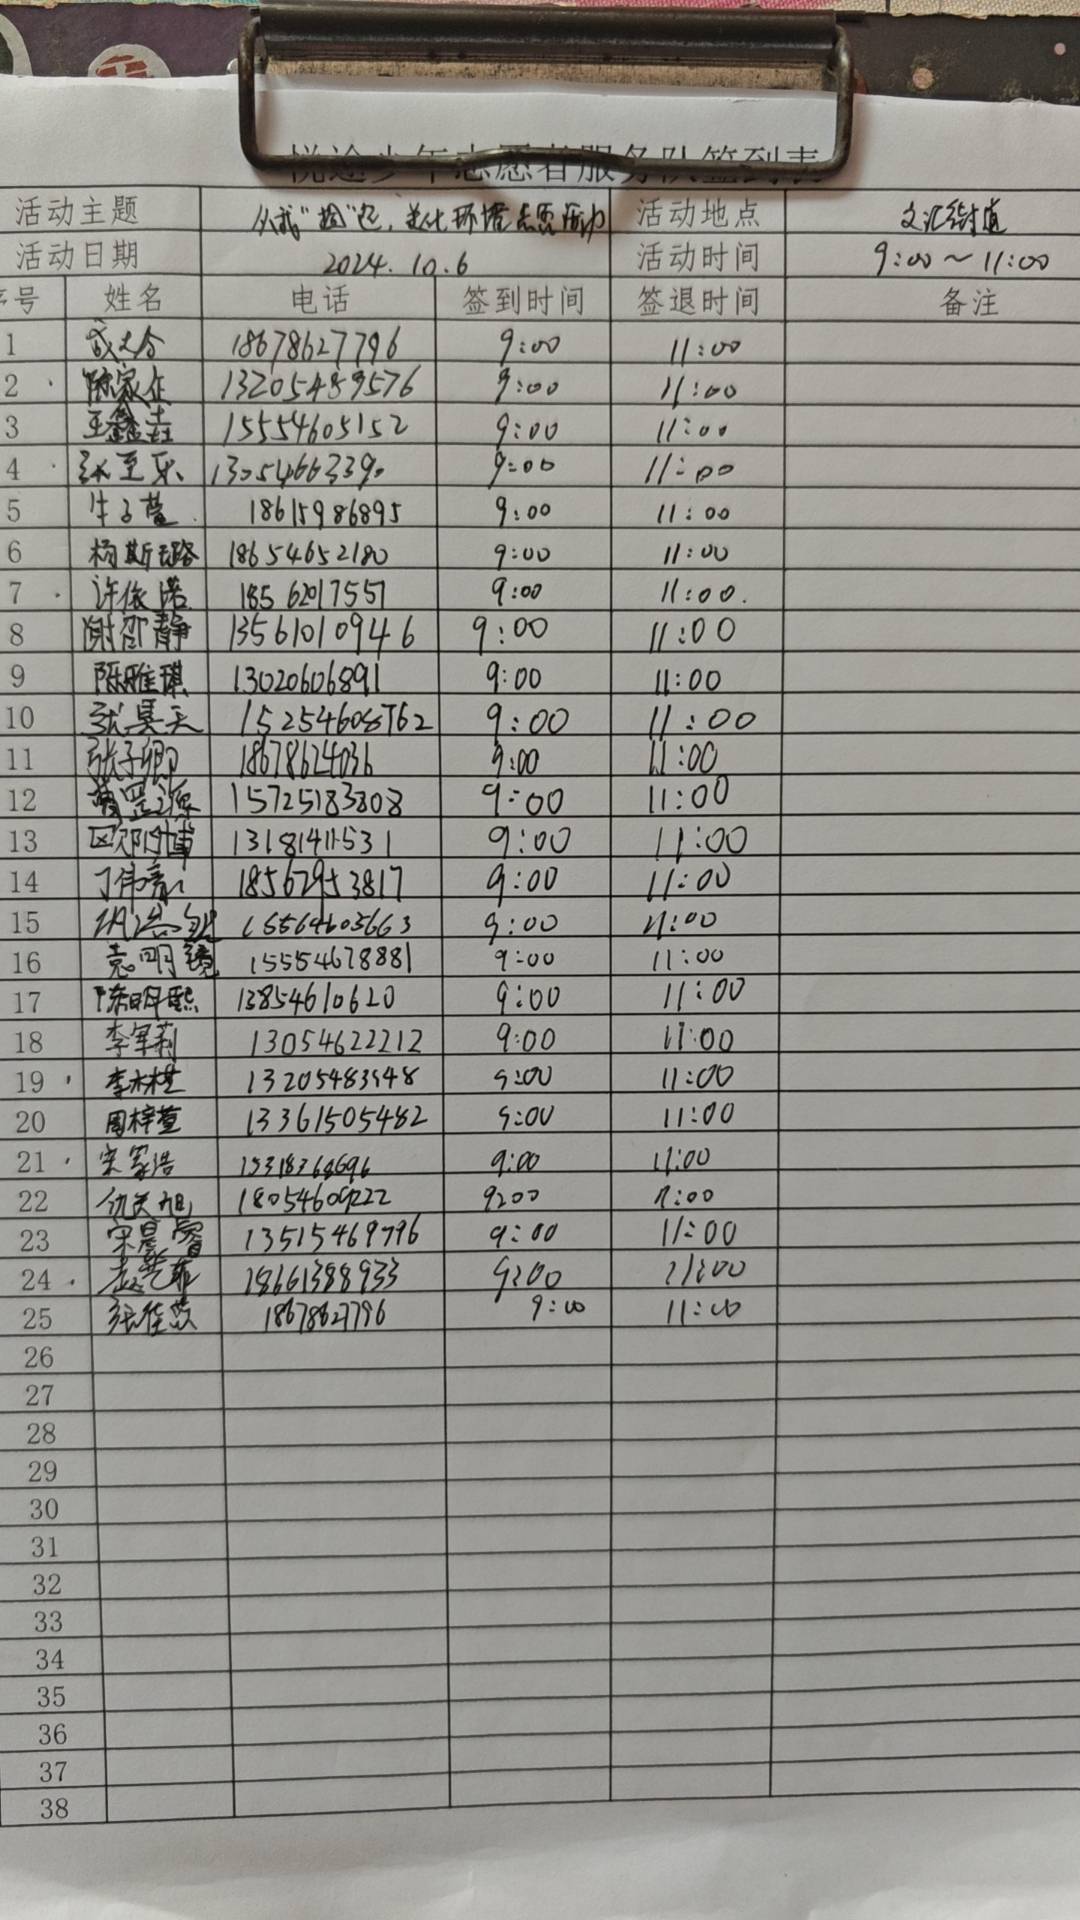 悦途少年志愿者服务队签到表
活动主题 从我"捡"起，美化环境志愿活动 活动地点 文汇街道
活动日期 2024.10.6 活动时间 9:00～11:00
序号 姓名 电话 签到时间 签退时间 备注
1 18678627796 9:00 11:00
2 陈家任 13205489576 9:00 11:00
3 王鑫垚 15554605152 9:00 11:00
4 张至乐 13054663390 9:00 11:00
5 牛子萱 18615986895 9:00 11:00
6 杨斯璐 18654652180 9:00 11:00
7 许依诺 18562017557 9:00 11:00.
8 谢邵静 13561010946 9:00 11:00
9 陈雅琪 13020606891 9:00 11:00
10 张昊天 9:00 11:00
11 张子卿 18678624036 9:00 11:00
12 15725183808 9:00 11:00
13 13181411531 9:00 11:00
14 18562953817 9:00 11:00
15 15564605663 9:00 11:00
16 袁明镜 15554678881 9:00 11:00
17 陈明熙 13854610620 9:00 11:00
18 李军莉 13054622212 9:00 11:00
19 13205483548 9:00 11:00
20 周梓萱 13361505482 9:00 11:00
21 宋家浩 9:00 11:00
22 仇天旭 18054609222 9:00 11:00
23 宋晨睿 13515469796 9:00 11:00
24 18661388933 9:00 11:00
25 18678627796 9:00 11:00
26
27
28
29
30
31
32
33
34
35
36
37
38